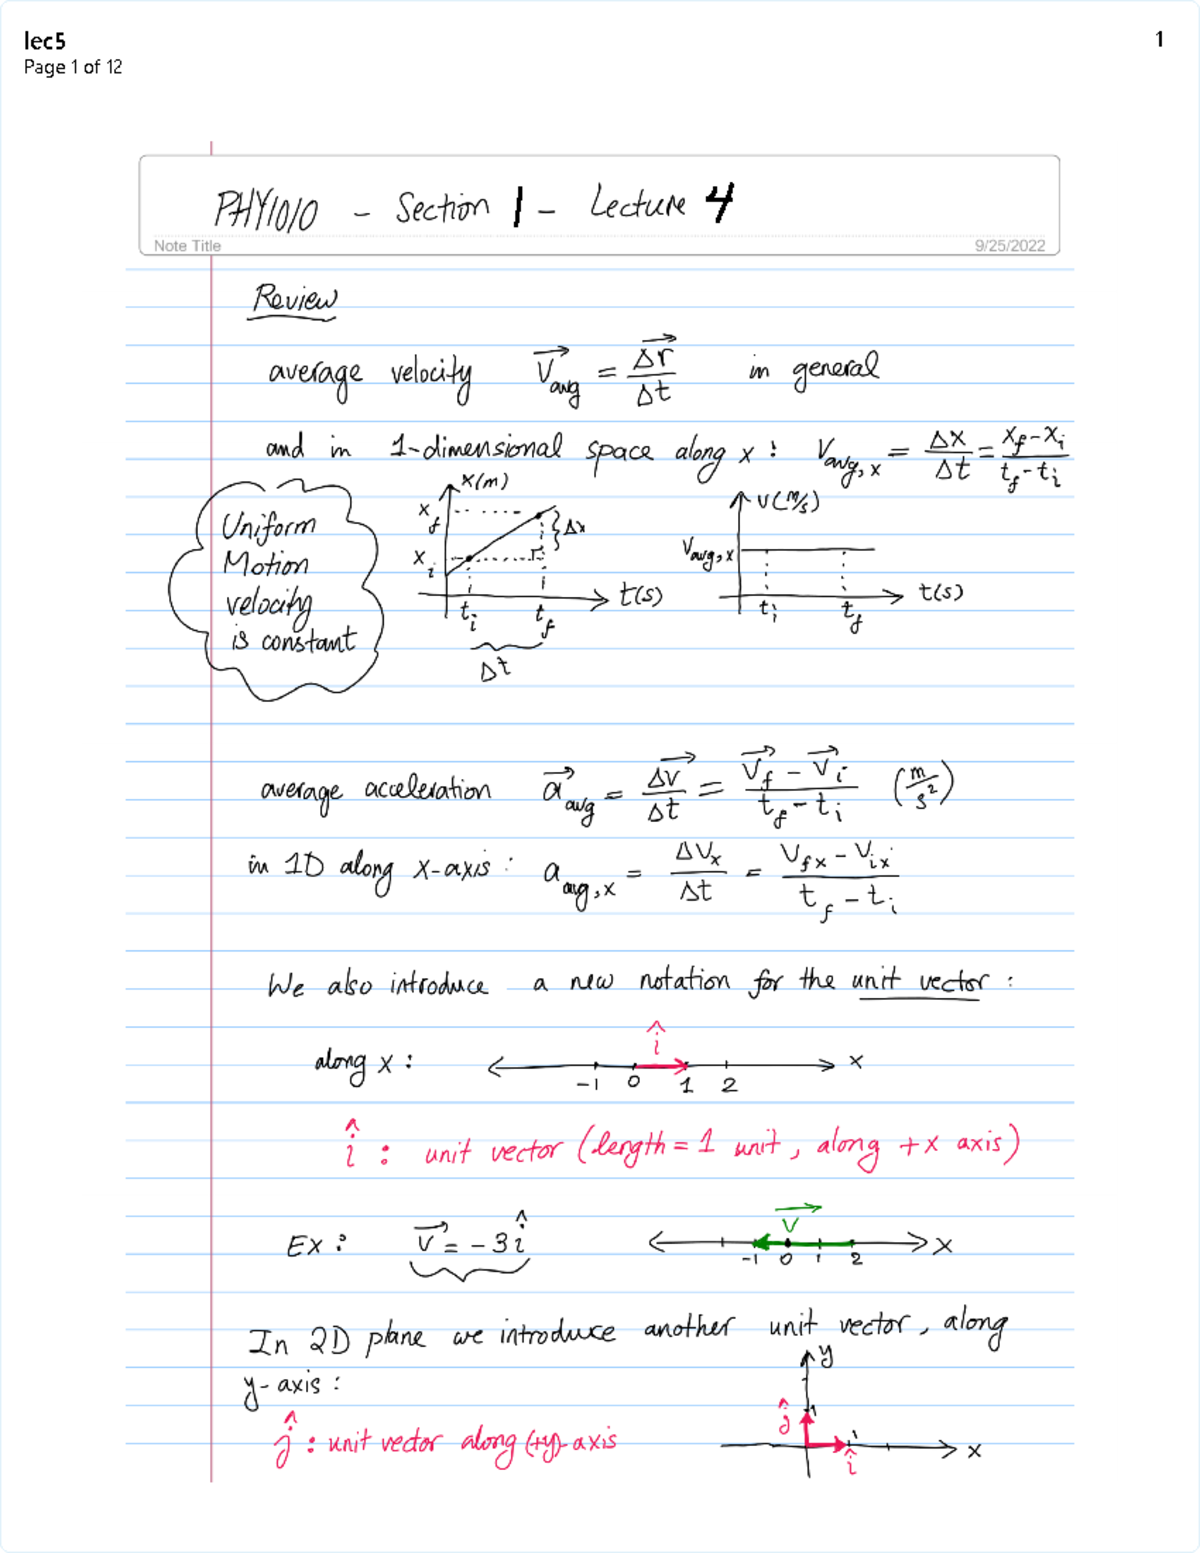 lec5
Page 1 of 12
1
PHY1010 - Section 1 - Lecture 4
Note Title
9/25/2022
Review
average velocity v⃗avg = Δr⃗/Δt in general
and in 1-dimensional space along x : Vavg,x = Δx/Δt = (xf - xi)/(tf - ti)
Uniform
Motion
velocity
is constant
x(m)
xf
Δx
xi
t(s)
ti
tf
Δt
v(m/s)
Vavg,x
t(s)
ti
tf
average acceleration a⃗avg = Δv⃗/Δt = (v⃗f - v⃗i)/(tf - ti) (m/s²)
in 1D along x-axis : aavg,x = ΔVx/Δt = (Vfx - Vix)/(tf - ti)
We also introduce a new notation for the unit vector :
along x :
î
-1 0 1 2
x
î : unit vector (length = 1 unit, along +x axis)
Ex : v⃗ = -3î
v⃗
-1 0 1 2
x
In 2D plane we introduce another unit vector, along
y-axis :
ĵ : unit vector along (+y)-axis
y
1
ĵ
1
î
x